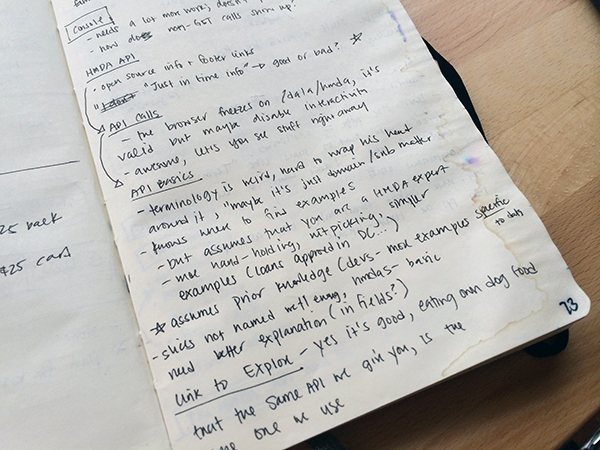 Console
- needs a lot more work, doesn't
- how does non-GET calls show up?
HMDA API
- open source info + footer links
- "Just in time info" → good or bad? ☆
API CALLS
- the browser freezes on /data/hmda, it's
valid but maybe disable interactivity
- awesome, lets you see stuff right away
API BASICS
- terminology is weird, hard to wrap his head
around it, "maybe it's just domain/sub matter
- knows where to find examples
- but assumes that you are a HMDA expert
- more hand-holding, nitpicking: simpler
examples (loans approved in DC...)
☆ assumes prior knowledge (devs - more examples specific
to data
- slices not named well enuf, hmdas - basic
need better explanation (in fields?)
Link to Explore - yes it's good, eating own dog food
that the same API we give you, is the
one we use
23
25 back
$25 card